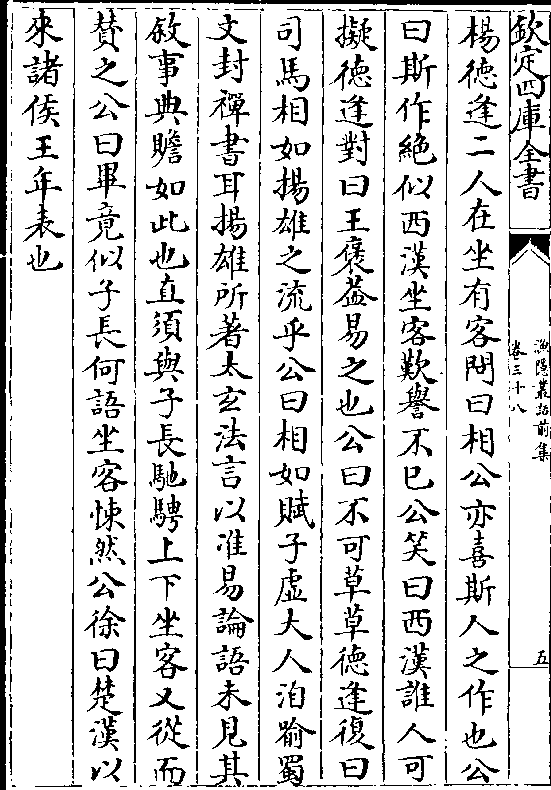 欽定四庫全書
漁隱叢話前集
卷三十八
五
楊德逢二人在坐有客問曰相公亦喜斯人之作也公
曰斯作絶似西漢坐客歎譽不已公笑曰西漢誰人可
擬德逢對曰王褒葢易之也公曰不可草草德逢復曰
司馬相如揚雄之流乎公曰相如賦子虛大人洎喻蜀
文封禪書耳揚雄所著太玄法言以准易論語未見其
敘事典贍如此也直須與子長馳騁上下坐客又從而
賛之公曰畢竟似子長何語坐客悚然公徐曰楚漢以
來諸侯王年表也